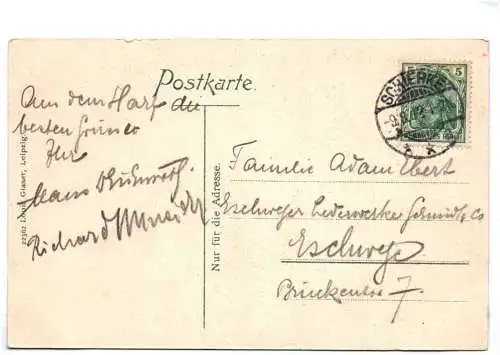 Postkarte.
SCHIERKE
5 5
Aus dem Harz die
besten Grüsse
Ihr
Hans
Richard Schneider
22362 Louis Glaser, Leipzig.
Nur für die Adresse.
Familie Adam Ebert
Eschweger Lederwerke Schmidt & Co
Eschwege
Brückentor 7.